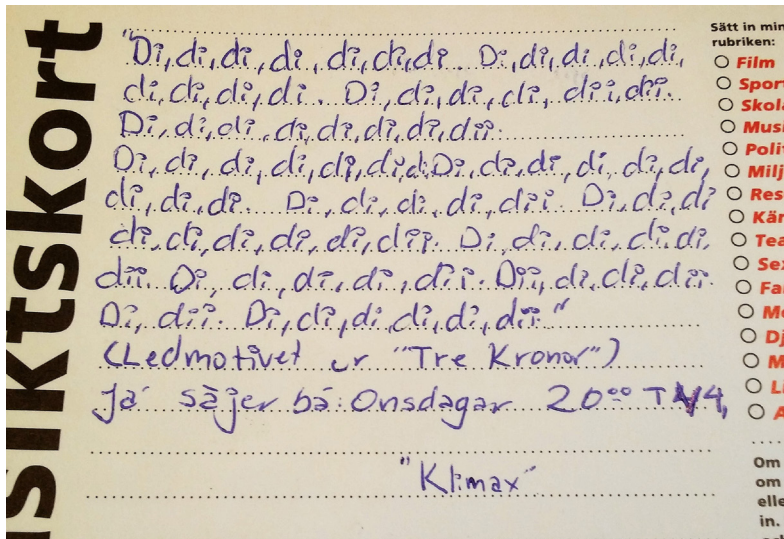 siktskort
"Di, di, di, di, di, di, di. Di, di, di, di, di,
di, di, di, di. Di, di, di, di, dii, dii.
Di, di, di, di, di, di, di, dii.
Di, di, di, di, di, di, di. Di, di, di, di, di, di,
di, di, di. Di, di, di, di, dii. Di, di, di
di, di, di, di, di, dii. Di, di, di, di, di,
dii. Di, di, di, di, dii. Dii, di, di, dii.
Di, dii. Di, di, di, di, di, dii."
(Ledmotivet ur "Tre Kronor")
Ja säjer bä: Onsdagar 20.00 TV4,
"Klimax"
Sätt in min
rubriken:
Film
Sport
Skola
Musi
Polit
Milj
Res
Kär
Tea
Sex
Fa
Me
Dj
M
Li
A
Om
om
elle
in.